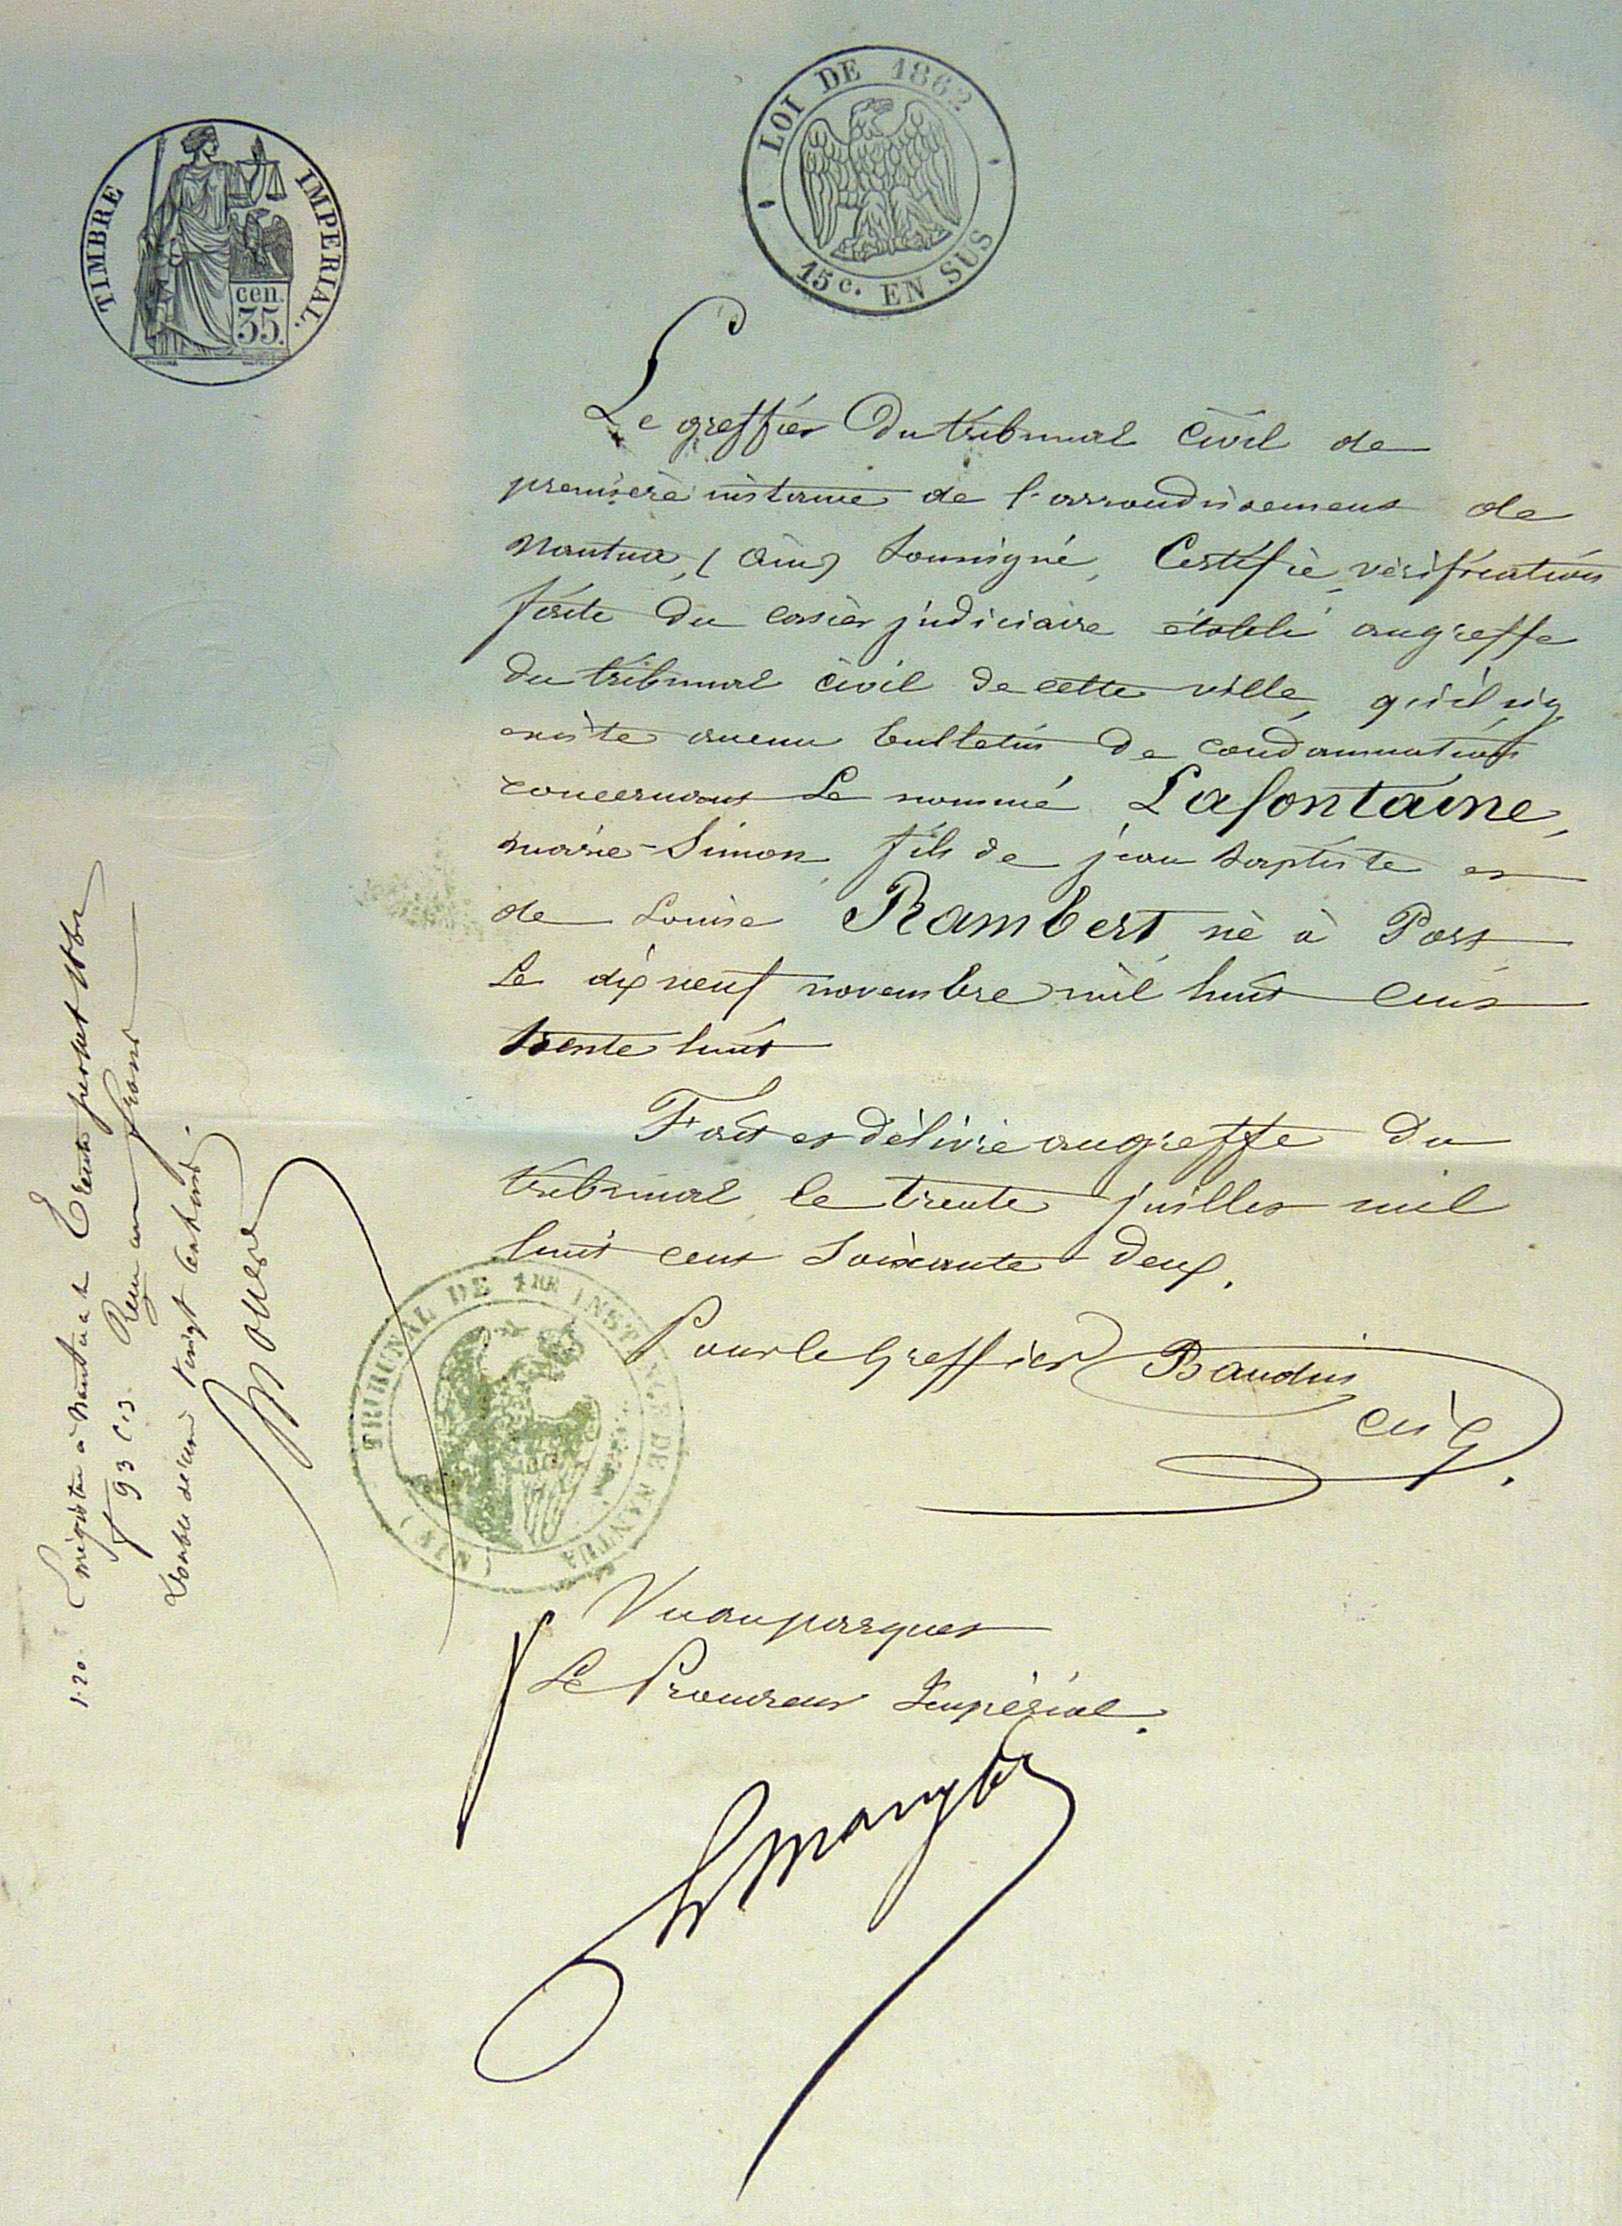 TIMBRE IMPERIAL.
cen.
35.
LOI DE 1862
15c. EN SUS
Le greffier du tribunal civil de
première instance de l'arrondissement de
Nantua, (Ain) soussigné, Certifie, vérification
faite du casier judiciaire établi au greffe
du tribunal civil de cette ville, qu'il n'y
existe aucun bulletin de condamnation
concernant le nommé Lafontaine,
marie-Simon, fils de jean baptiste et
de Louise Rambert, né à Port
le dix neuf novembre mil huit cent
trente huit
Fait et délivré au greffe du
tribunal le trente juillet mil
huit cent soixante deux.
Pour le Greffier Baudin
TRIBUNAL DE 1RE INST. DE NANTUA
(AIN)
Vu au parquet
Le Procureur Impérial.
1.20. Enrégistré à Nantua le trente juillet
f 93 Reçu un franc
double décime vingt centimes.